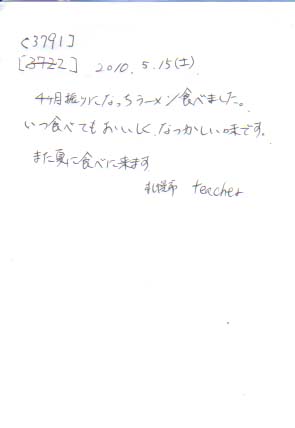 [3791]
[3722] 2010. 5.15(土)
4ヶ月振りになっちラーメン食べました。
いつ食べてもおいしく、なつかしい味です。
また夏に食べに来ます
札幌市 teacher